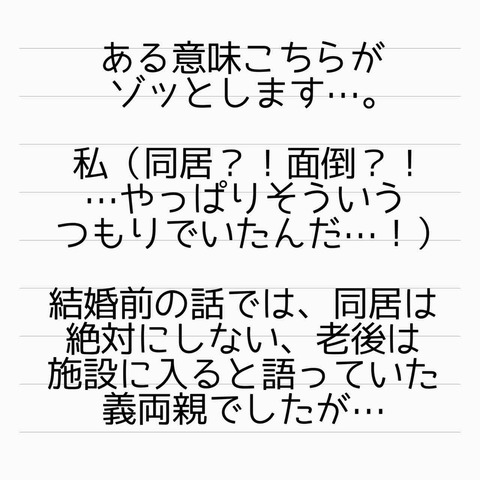 ある意味こちらが
ゾッとします…。
私（同居？！面倒？！
…やっぱりそういう
つもりでいたんだ…！）
結婚前の話では、同居は
絶対にしない、老後は
施設に入ると語っていた
義両親でしたが…